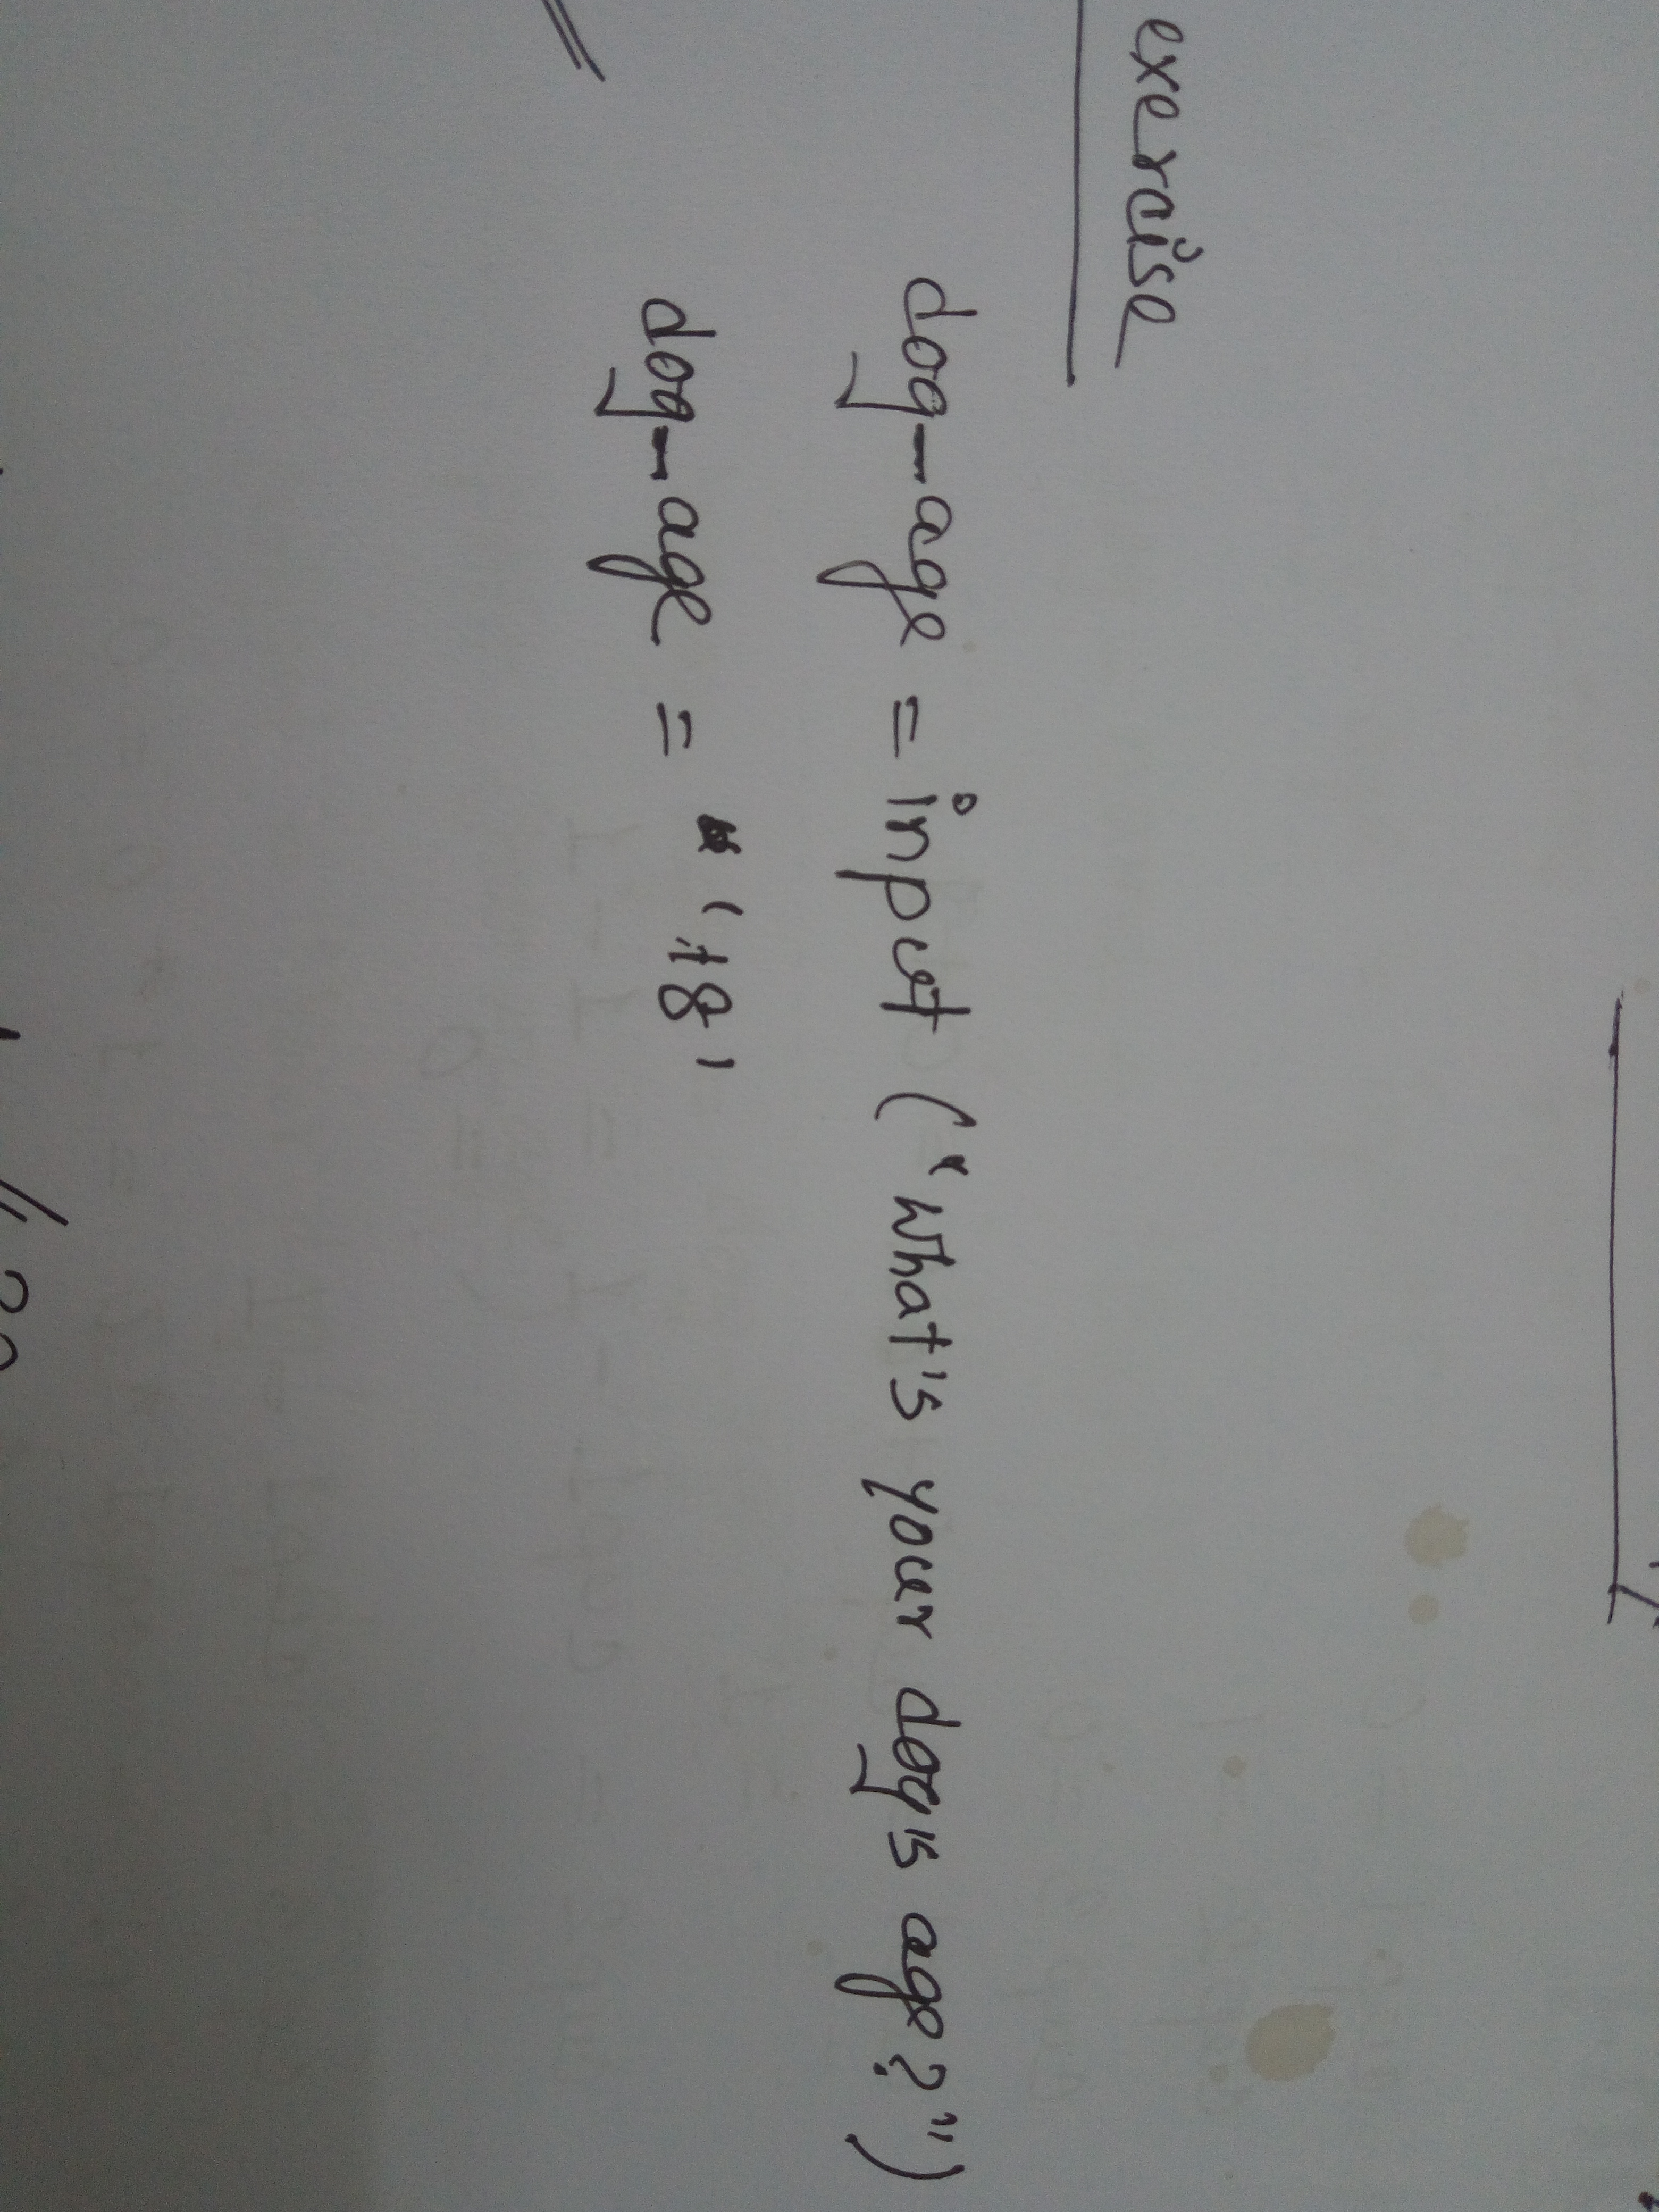 exercise
dog_age = input ("What's your dog's age?")
dog_age = '18'